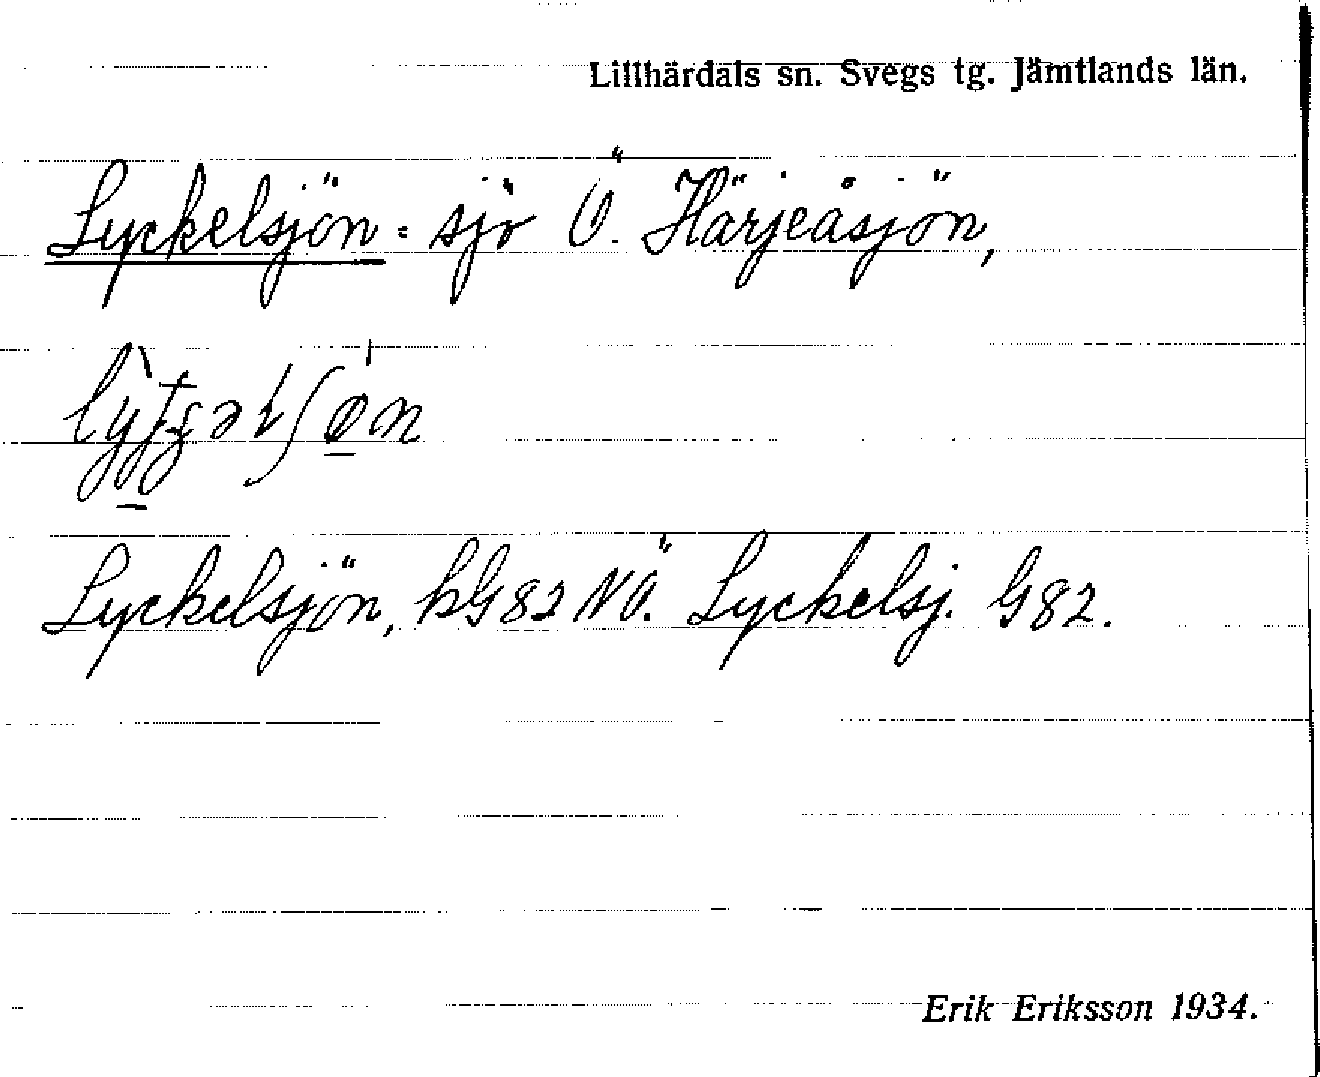 Lillhärdals sn. Svegs tg. Jämtlands län.
Lyckelsjön = sjö Ö. Härjeåsjön,
Lyckelsjön, kG82 NÖ. Lyckelsj. G82.
Erik Eriksson 1934.